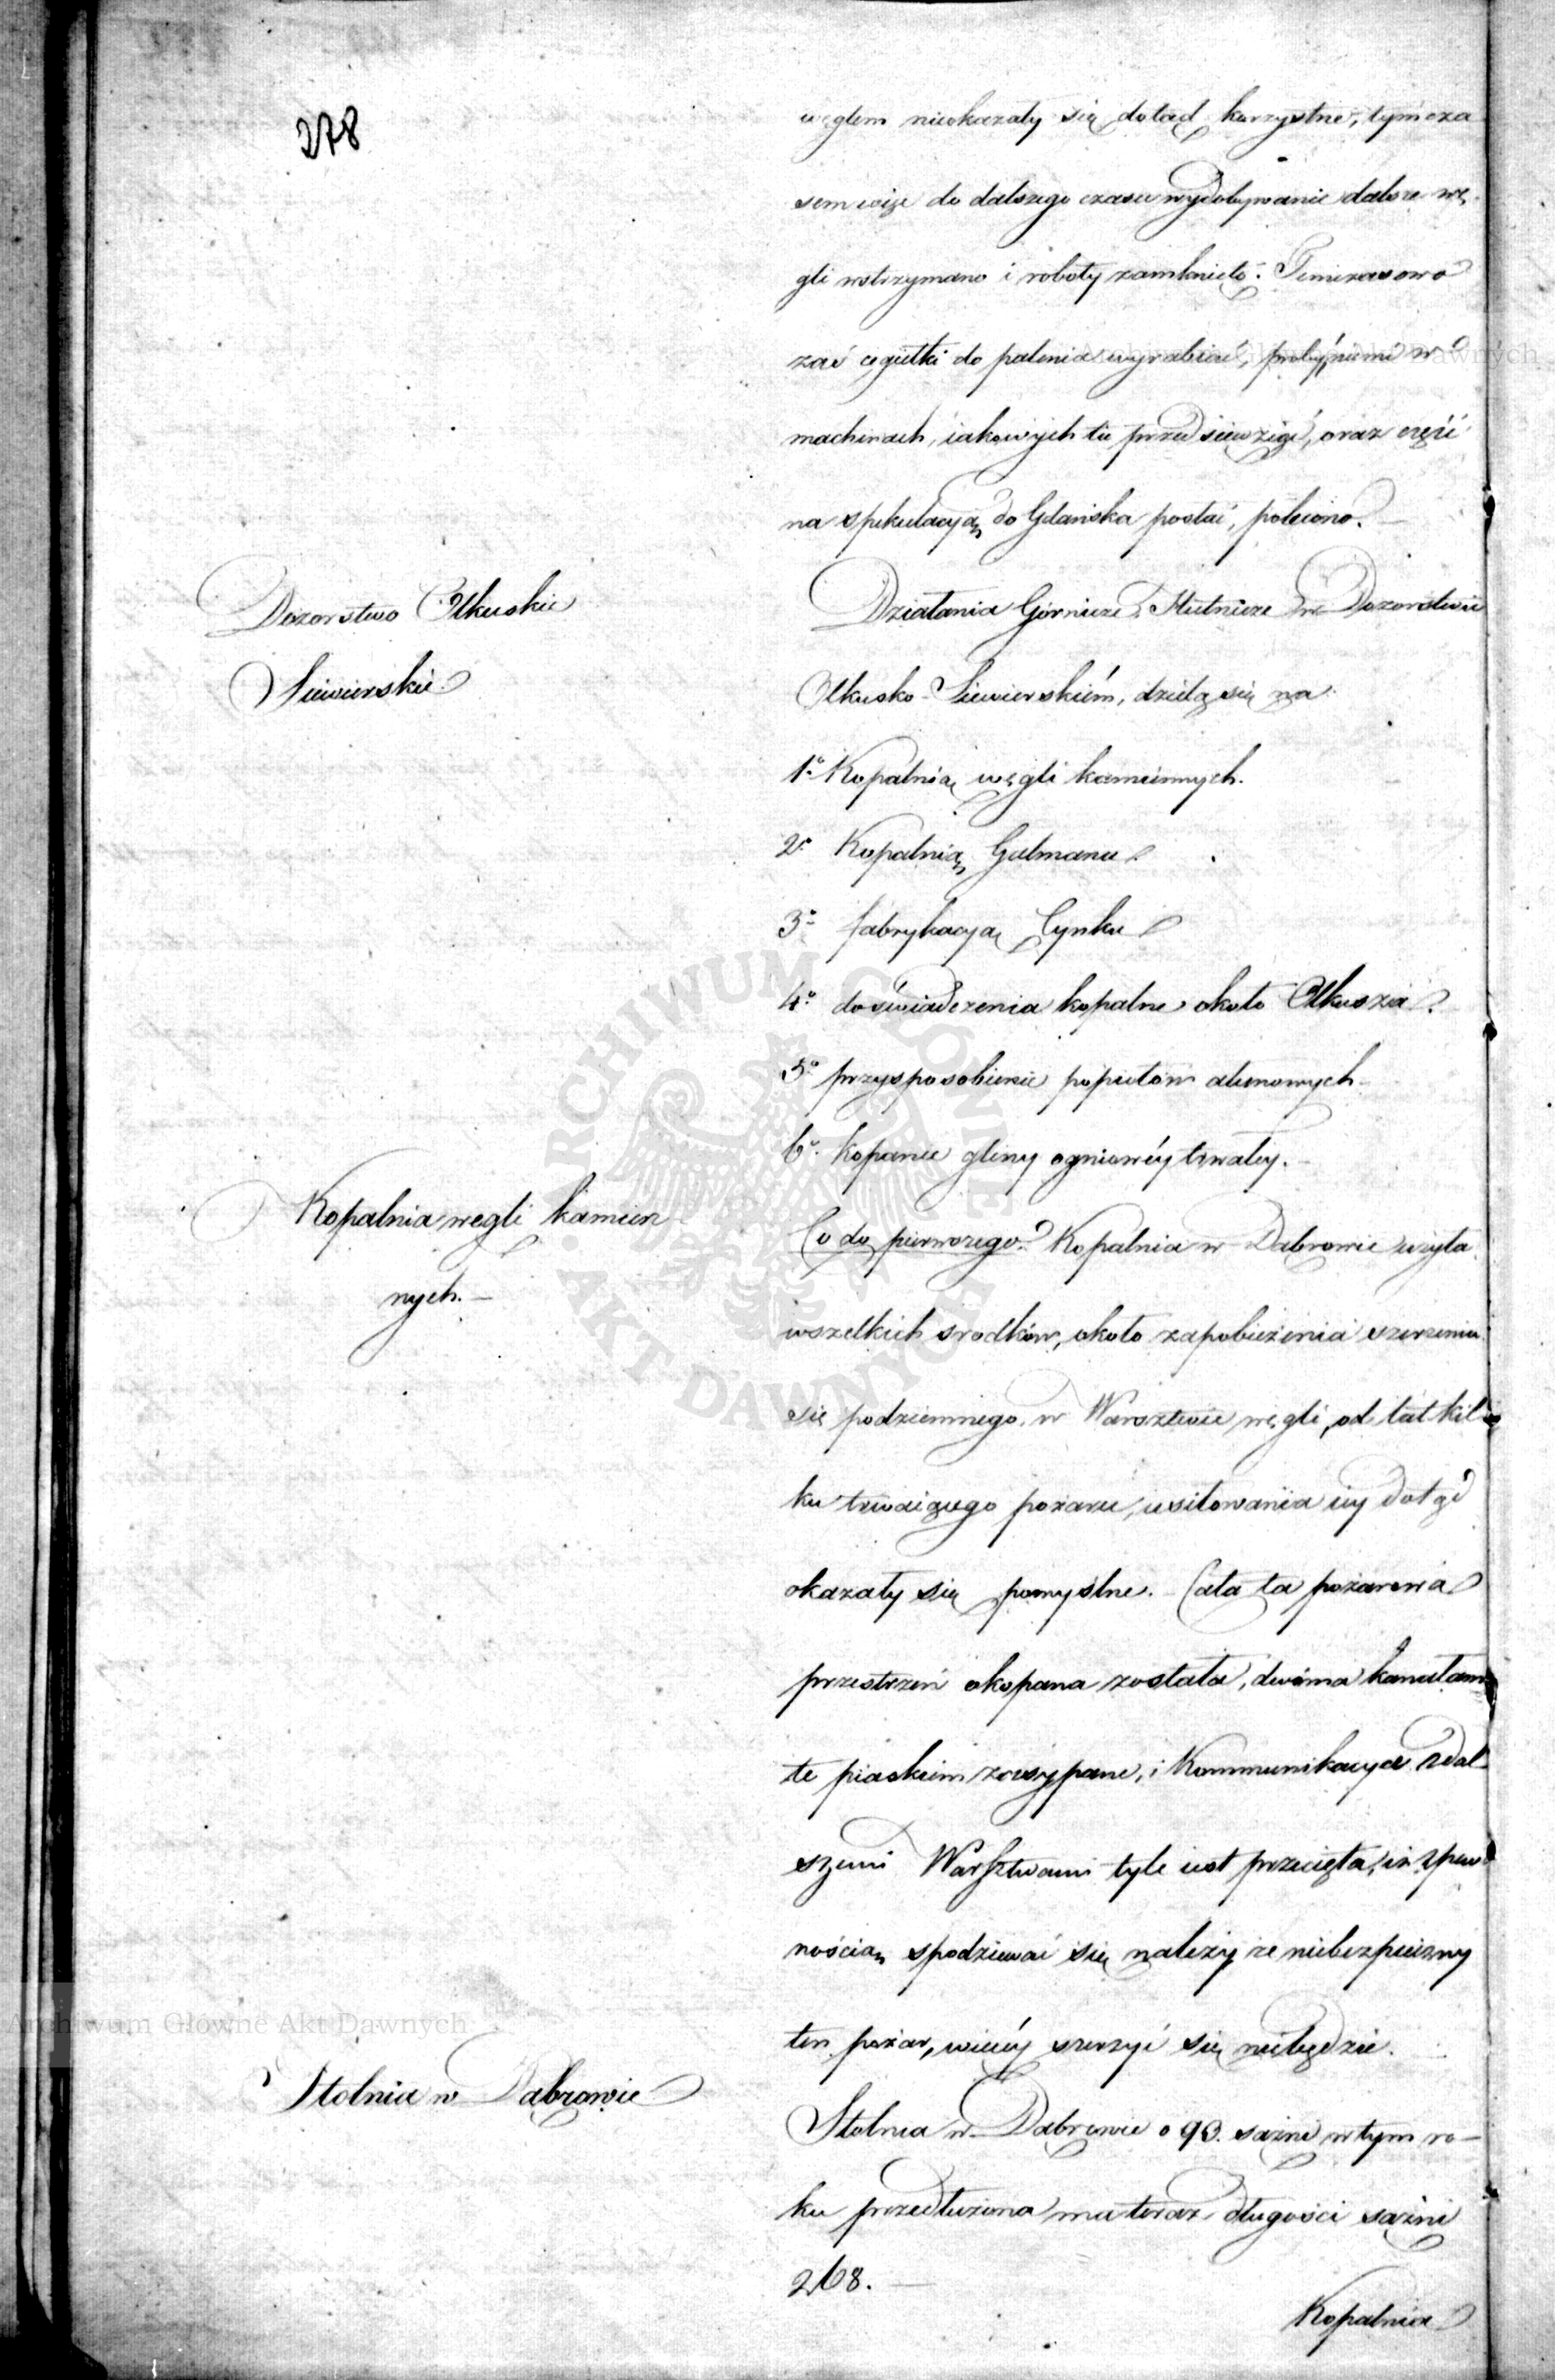 278
węglem nieokazały się dotąd korzystne, tymcza
sem więc do dalszego czasu wydobywanie dalsze wę
gli wstrzymano i roboty zamknięto. Timczasowo
zaś cegiełki do palenia wyrabiać, próby niemi w
machinach, iakowych tu przedsiewziąć, oraz część
na spekulacyą do Gdańska posłać, polecono.
Dozorstwo Olkuskie
Siewierskie
Działania Górnicze i Hutnicze w Dozorstwie
Olkusko-Siewierskiém, dzielą się na
1o Kopalnią węgli kamiennych.
2o Kopalnią Galmanu
3o fabrykacyą Cynku
4o doświadczenia kopalne około Olkusza.
5o przysposobienie popiołów ałunowych
6o kopanie gliny ogniowéy trwałey.
Kopalnia węgli kamien
nych.
Co do pierwszego. Kopalnia w Dąbrowie użyła
wszelkich srodków, około zapobieżenia szerzeniu
się podziemnego, w Warsztwie węgli, od lat kil
ku trwaiącego pożaru, usiłowania iey dotąd
okazały się pomyslne. Cała ta pożarowa
przestrzeń okopana została, dwóma kanałami
te piaskiem zasypane, i Kommunikacya z dal
szemi Warsztwami tyle iest przecięta, iż z pew
nością spodziewać się należy ze niebezpieczny
ten pożar, więcéy szerzyć się niebędzie.
Stolnia w Dąbrowie
Stolnia w Dąbrowie o 90. sążni w tym ro-
ku przedłużona ma teraz długości sążni
268.
Kopalnia
Archiwum Główne Akt Dawnych
Archiwum Główne Akt Dawnych
ARCHIWUM GŁÓWNE AKT DAWNYCH